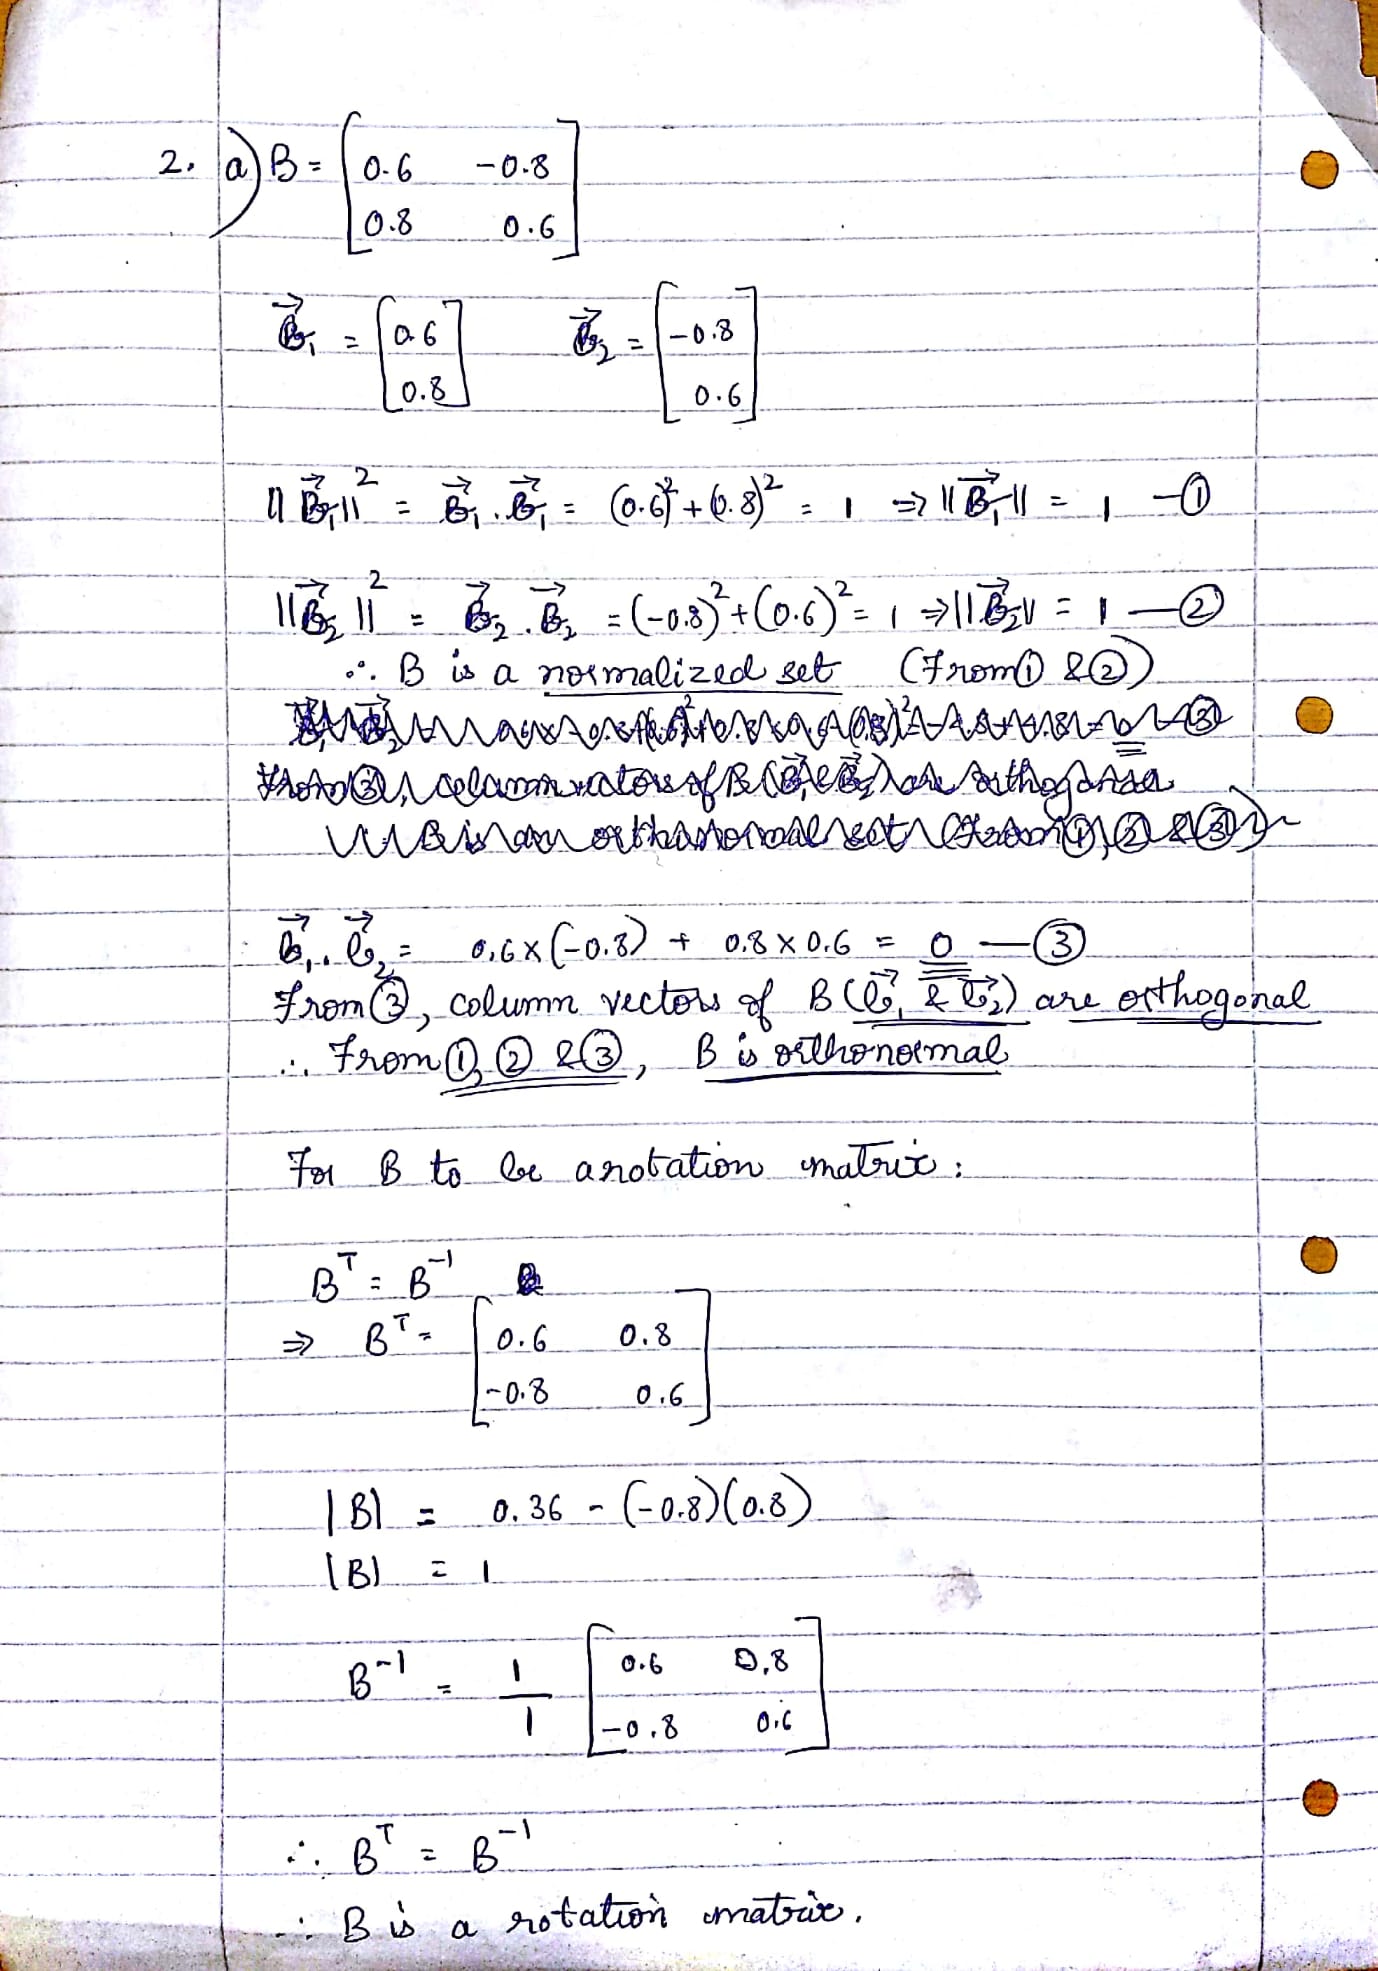 2. a) B = [ 0.6 -0.8
0.8 0.6 ]
b⃗₁ = [ 0.6
0.8 ] b⃗₂ = [ -0.8
0.6 ]
||b⃗₁||² = b⃗₁ . b⃗₁ = (0.6)² + (0.8)² = 1 ⇒ ||b⃗₁|| = 1 — ①
||b⃗₂||² = b⃗₂ . b⃗₂ = (-0.8)² + (0.6)² = 1 ⇒ ||b⃗₂|| = 1 — ②
∴ B is a normalized set (From ① & ②)
b⃗₁ . b⃗₂ = 0.6 x (-0.8) + 0.8 x 0.6 = 0 — ③
From ③, column vectors of B (b⃗₁ & b⃗₂) are orthogonal
∴ From ①, ② & ③, B is orthonormal
For B to be a rotation matrix :
Bᵀ = B⁻¹
⇒ Bᵀ = [ 0.6 0.8
-0.8 0.6 ]
|B| = 0.36 - (-0.8)(0.8)
|B| = 1
B⁻¹ = 1/1 [ 0.6 0.8
-0.8 0.6 ]
∴ Bᵀ = B⁻¹
∴ B is a rotation matrix.